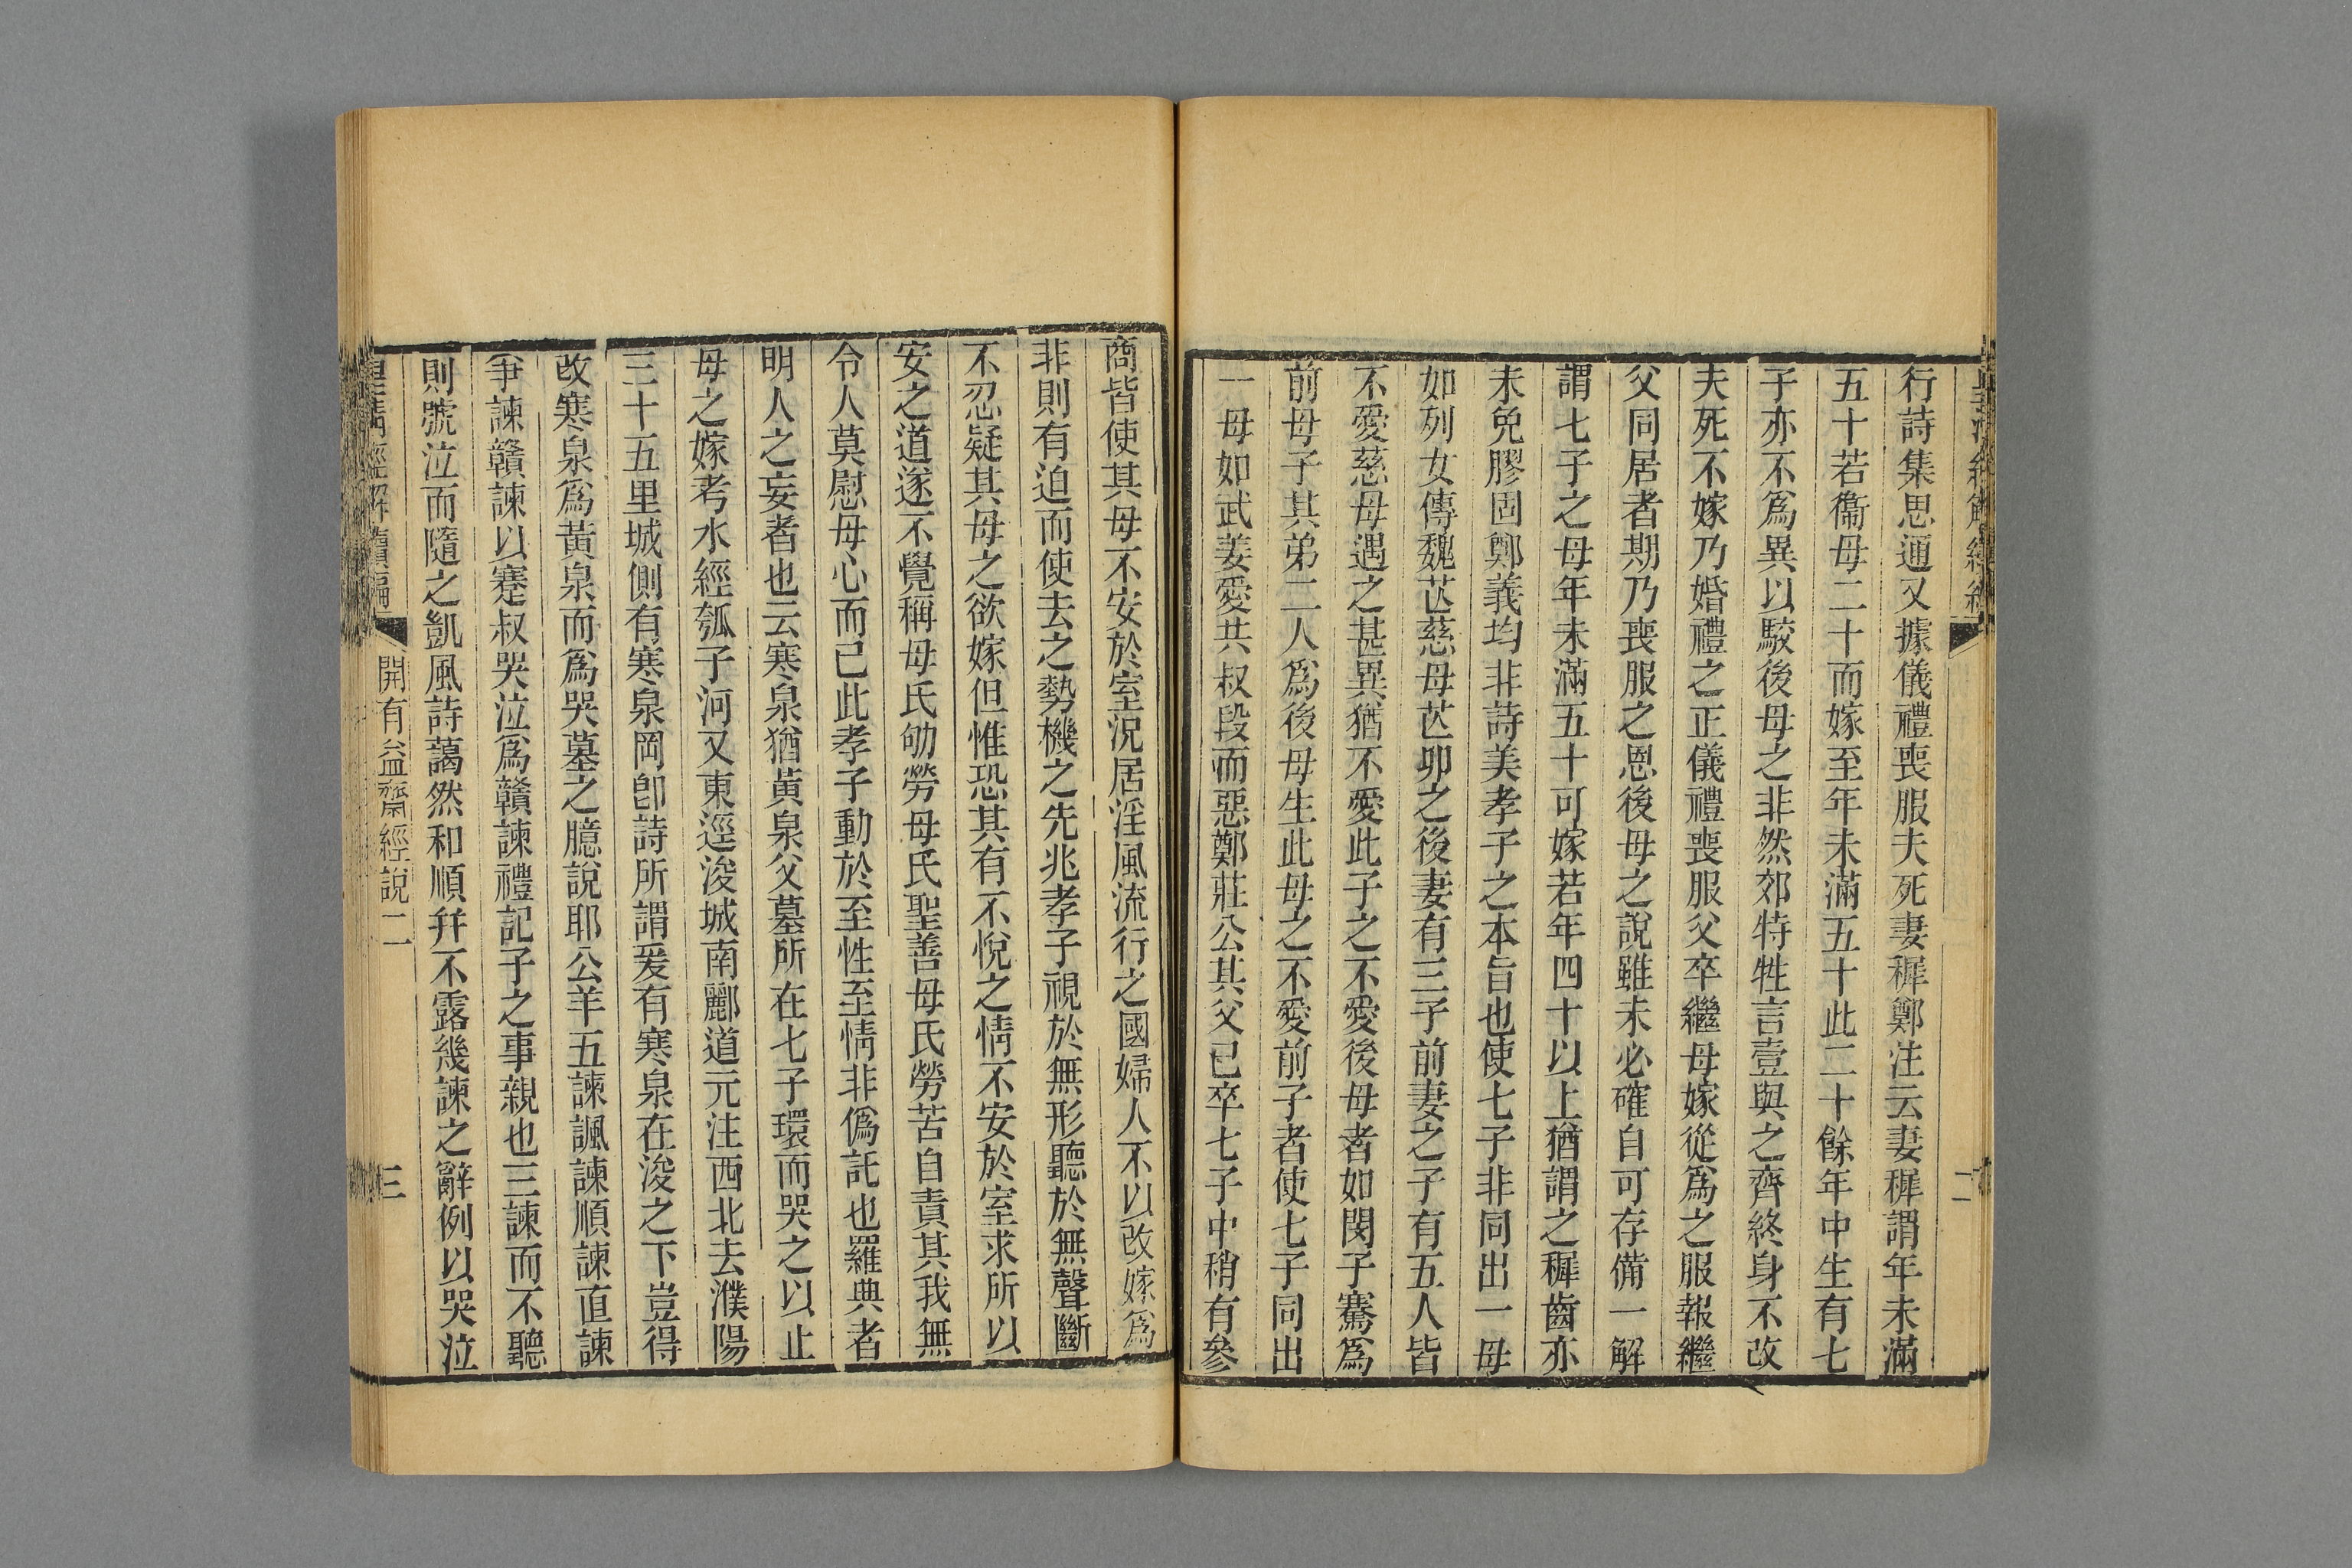 行詩集思通又據儀禮喪服夫死妻穉鄭注云妻穉謂年未滿
五十若衞母二十而嫁至年未滿五十此二十餘年中生有七
子亦不爲異以駮後母之非然郊特牲言壹與之齊終身不改
夫死不嫁乃婚禮之正儀禮喪服父卒繼母嫁從爲之服報繼
父同居者期乃喪服之恩後母之說雖未必確自可存備一解
謂七子之母年未滿五十可嫁若年四十以上猶謂之穉齒亦
未免膠固鄭義均非詩美孝子之本旨也使七子非同出一母
如列女傳魏芒慈母芒卯之後妻有三子前妻之子有五人皆
不愛慈母遇之甚異猶不愛此子之不愛後母者如閔子騫爲
前母子其弟二人爲後母生此母之不愛前子者使七子同出
一母如武姜愛共叔段而惡鄭莊公其父已卒七子中稍有參
商皆使其母不安於室況居淫風流行之國婦人不以改嫁爲
非則有迫而使去之勢機之先兆孝子視於無形聽於無聲斷
不忍疑其母之欲嫁但惟恐其有不悅之情不安於室求所以
安之道遂不覺稱母氏劬勞母氏聖善母氏勞苦自責其我無
令人莫慰母心而已此孝子動於至性至情非僞託也羅典者
明人之妄者也云寒泉猶黃泉父墓所在七子環而哭之以止
母之嫁考水經瓠子河又東逕浚城南酈道元注西北去濮陽
三十五里城側有寒泉岡卽詩所謂爰有寒泉在浚之下豈得
改寒泉爲黃泉而爲哭墓之臆說耶公羊五諫諷諫順諫直諫
爭諫贛諫以蹇叔哭泣爲贛諫禮記子之事親也三諫而不聽
則號泣而隨之凱風詩藹然和順幷不露幾諫之辭例以哭泣
皇淸經解續編
開有益齋經說二
三